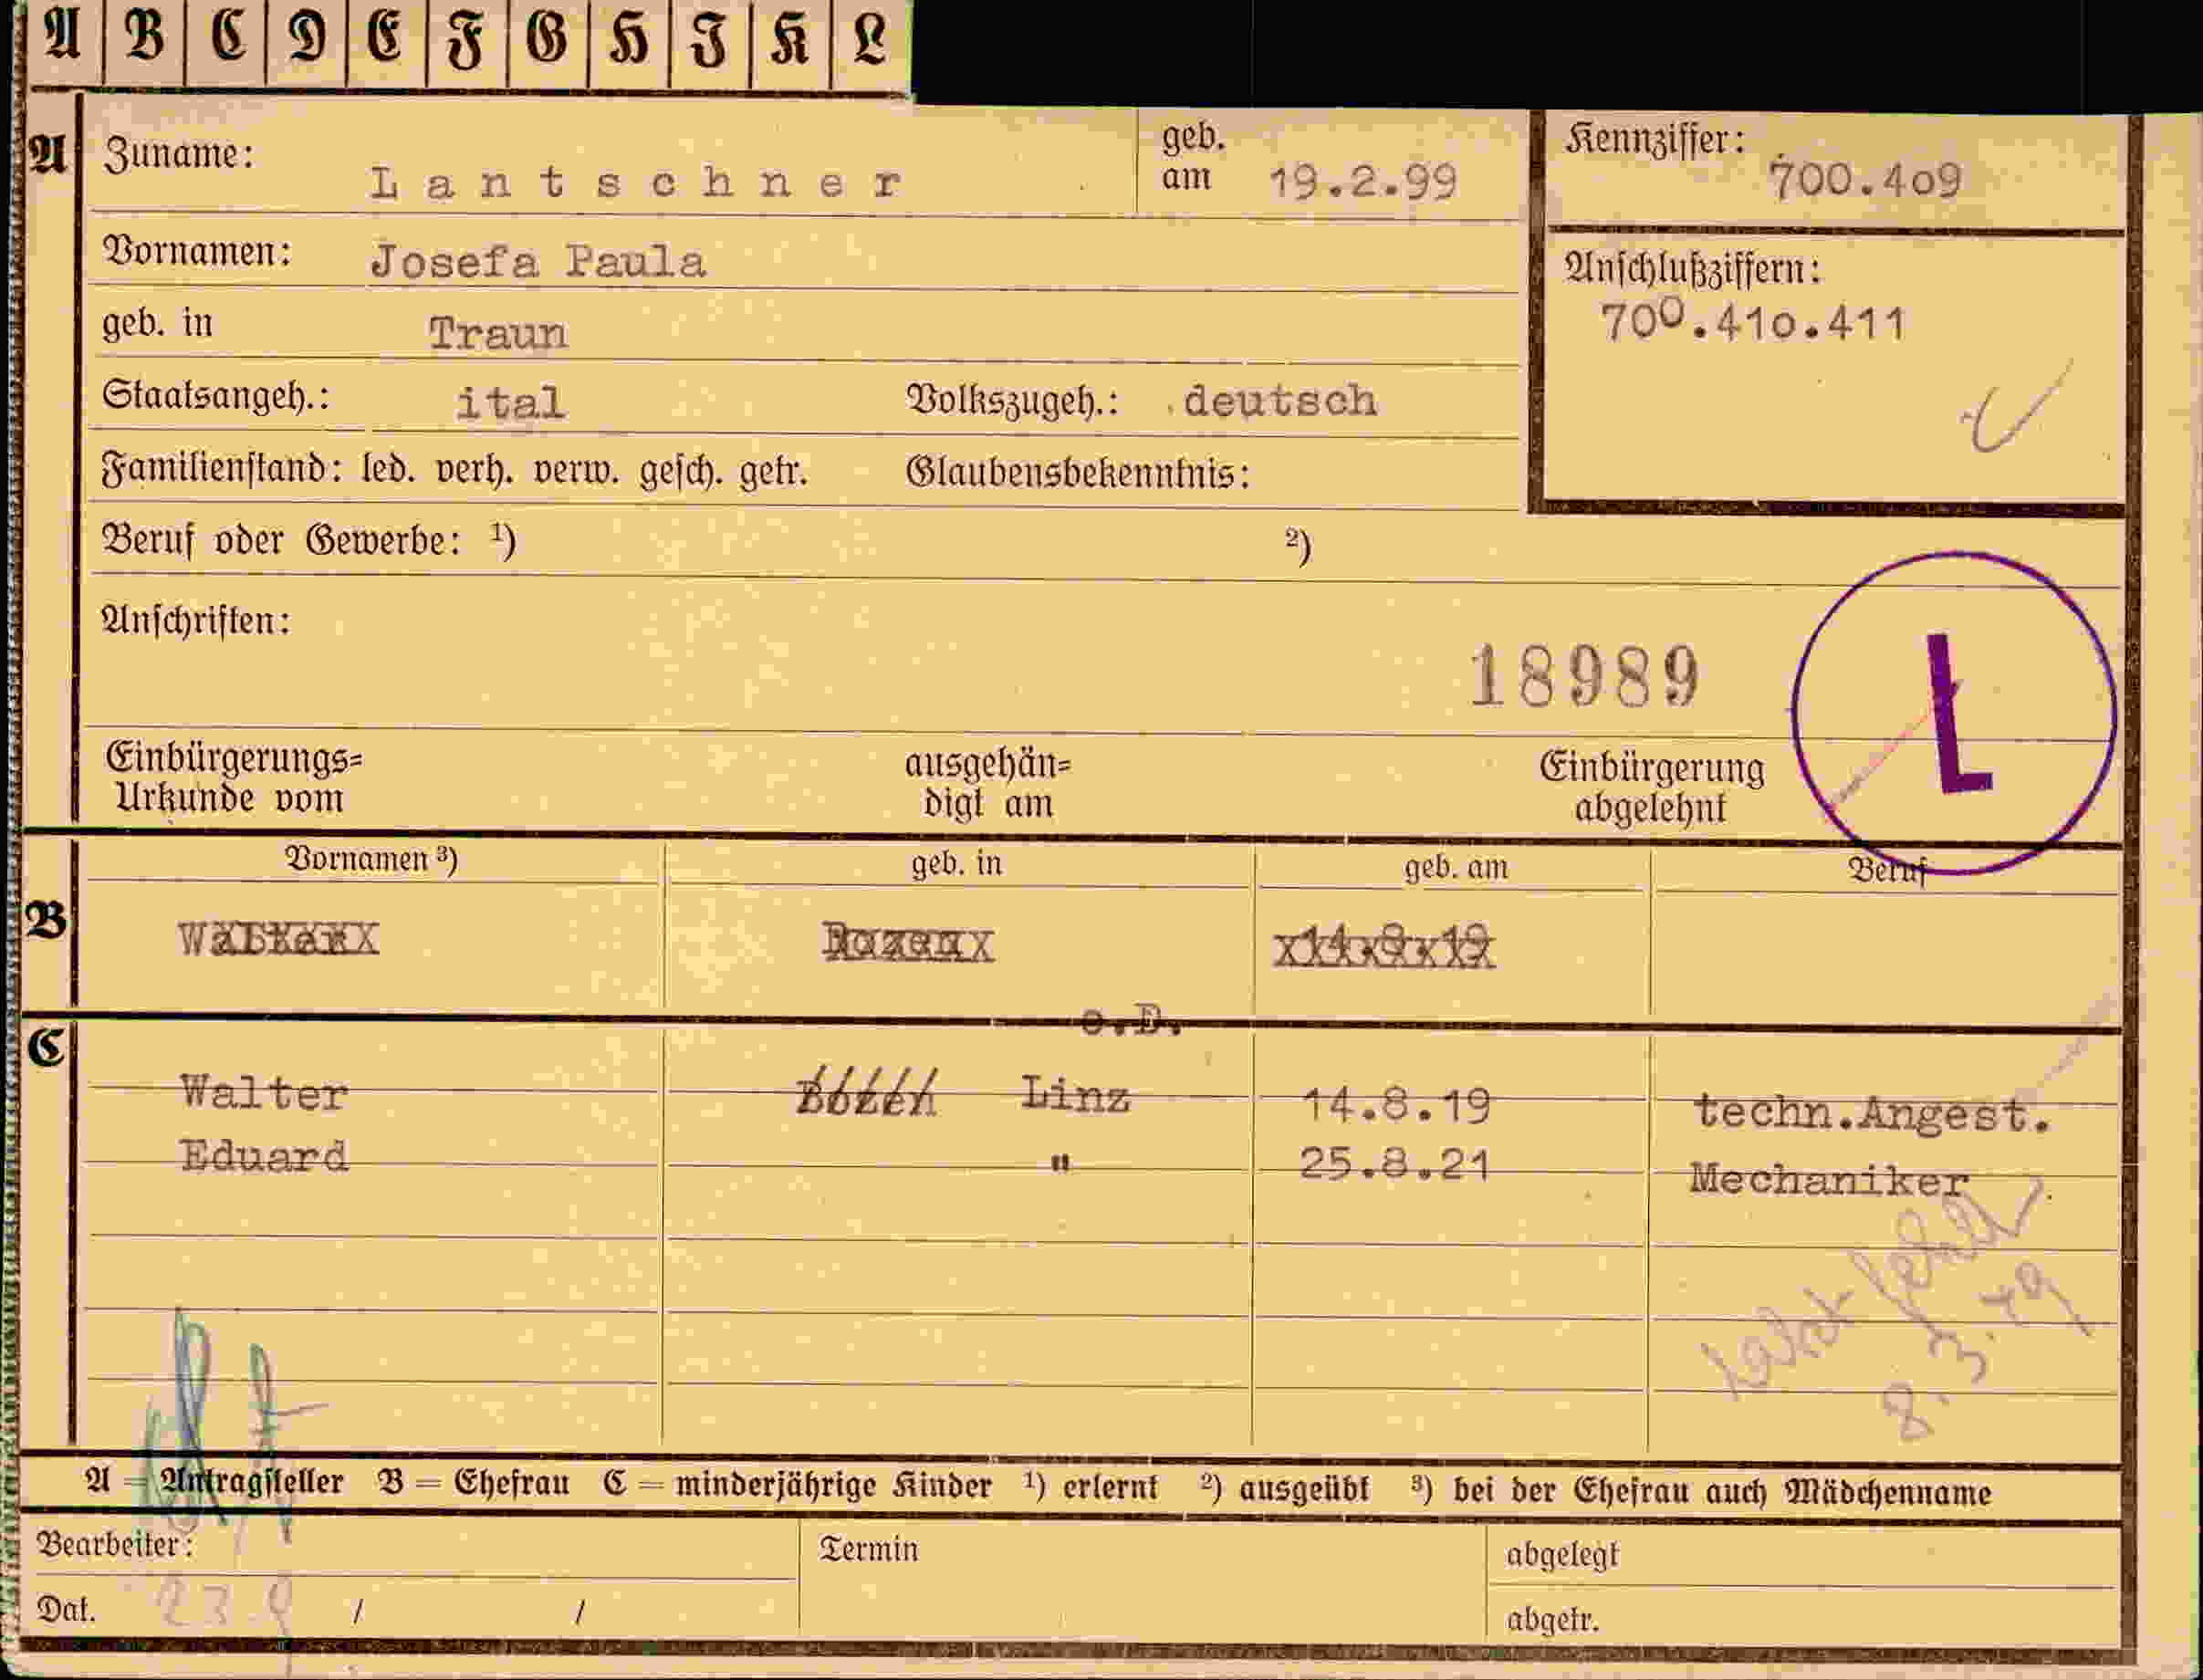 A B C D E F G H I K L
A Zuname: Lantschner geb. am 19.2.99 Kennziffer: 700.409
Vornamen: Josefa Paula
Anschlußziffern:
700.410.411
geb. in Traun
Staatsangeh.: ital Volkszugeh.: deutsch
Familienstand: led. verh. verw. gesch. getr. Glaubensbekenntnis:
Beruf oder Gewerbe: ¹) ²)
Anschriften:
18989
L
Einbürgerungs= ausgehän= Einbürgerung
Urkunde vom digt am abgelehnt
Vornamen ³) geb. in geb. am Beruf
B Walter Bozen 14.8.19
o.D.
C
Walter Bozen Linz 14.8.19 techn.Angest.
Eduard " 25.8.21 Mechaniker
8.3.
A = Antragsteller B = Ehefrau C = minderjährige Kinder ¹) erlernt ²) ausgeübt ³) bei der Ehefrau auch Mädchenname
Bearbeiter: Termin abgelegt
Dat. 23.9 / / abgetr.